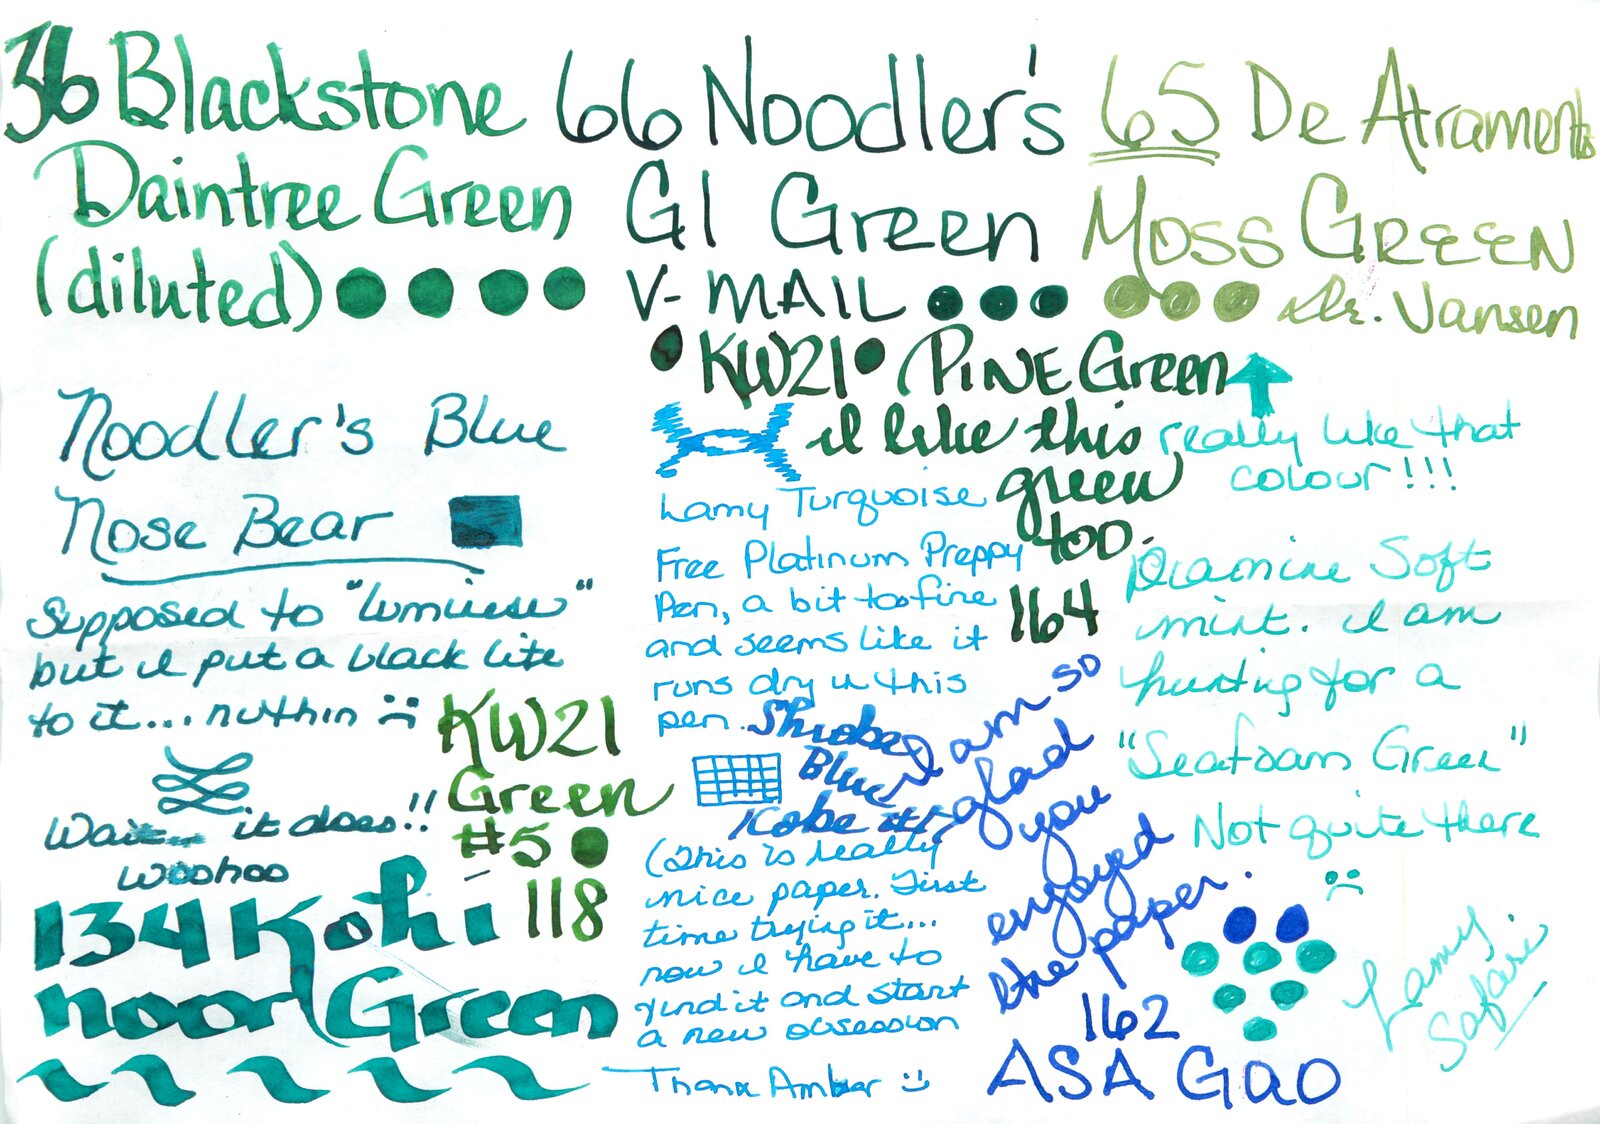 36 Blackstone
Daintree Green
(diluted)
66 Noodler's
GI Green
V-MAIL
65 De Atraments
Moss GREEN
Dr. Vansen
KW21 PINE Green
i like this
green
too.
164
really like that
colour!!!
Noodler's Blue
Nose Bear
Supposed to "lumiiese"
but i put a black lite
to it... nuthin :(
Wait... it does!!
woohoo
KW21
Green
#5
118
134 Kohi
noor Green
Lamy Turquoise
Free Platinum Preppy
Pen, a bit too fine
and seems like it
runs dry in this
pen.
Blue
Kobe
(This is really
nice paper. First
time trying it...
now i have to
find it and start
a new obsession
Thanx Amber :)
I am so
glad
you
enjoyed
the paper.
162
ASA Gao
Diamine Soft
mint. i am
hunting for a
"Seafoam Green"
Not quite there
:(
Lamy
Safari